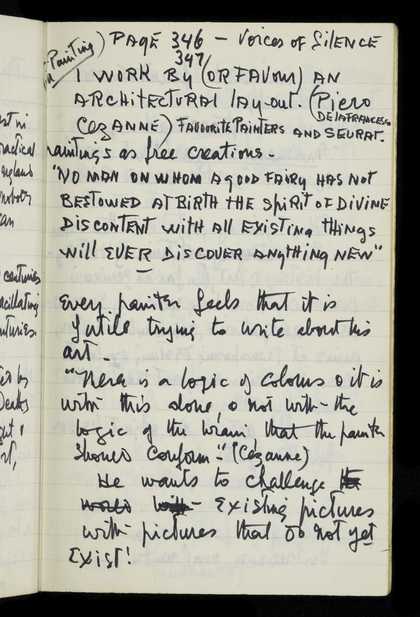 Painting) PAGE 346 – Voices of Silence
347
I WORK BY (OR FAVOUR) AN
ARCHITECTURAL lay-out. (Piero
DELAFRANCESCA
CEZANNE) FAVOURITE PAINTERS AND SEURAT.
Paintings as free creations –
"NO MAN ON WHOM A GOOD FAIRY HAS NOT
BESTOWED AT BIRTH THE SPIRIT OF DIVINE
DISCONTENT WITH ALL EXISTING THINGS
Will EVER DISCOVER ANYTHING NEW"
Every painter feels that it is
futile trying to write about his
art –
"There is a logic of colours & it is
with this alone, & not with the
logic of the brain that the painter
should conform." (Cézanne)
He wants to challenge the
world with – Existing pictures
with pictures that do not yet
Exist!
centuries
vacillating
centuries.
by
Death